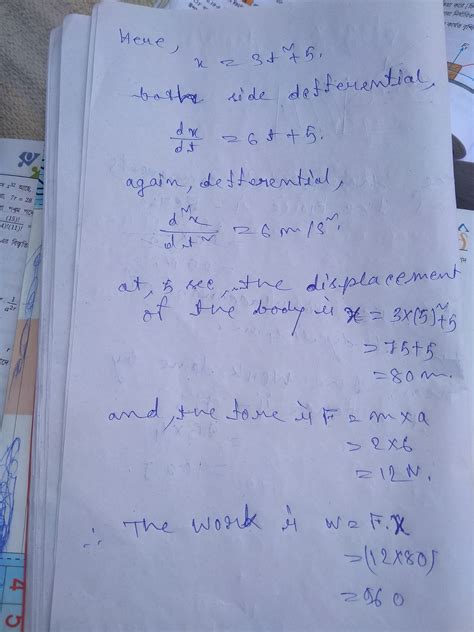 Here,
x = 3t²+5.
both side defferential,
dx/dt = 6t+5.
again, defferential,
d²x/dt² = 6 m/s²
at, 5 sec, the displacement
of the body is x = 3×(5)²+5
= 75+5
= 80 m.
and, the force is F = m×a
= 2×6
= 12 N.
∴ The work is w = F.x
= (12×80)
= 960
4
5